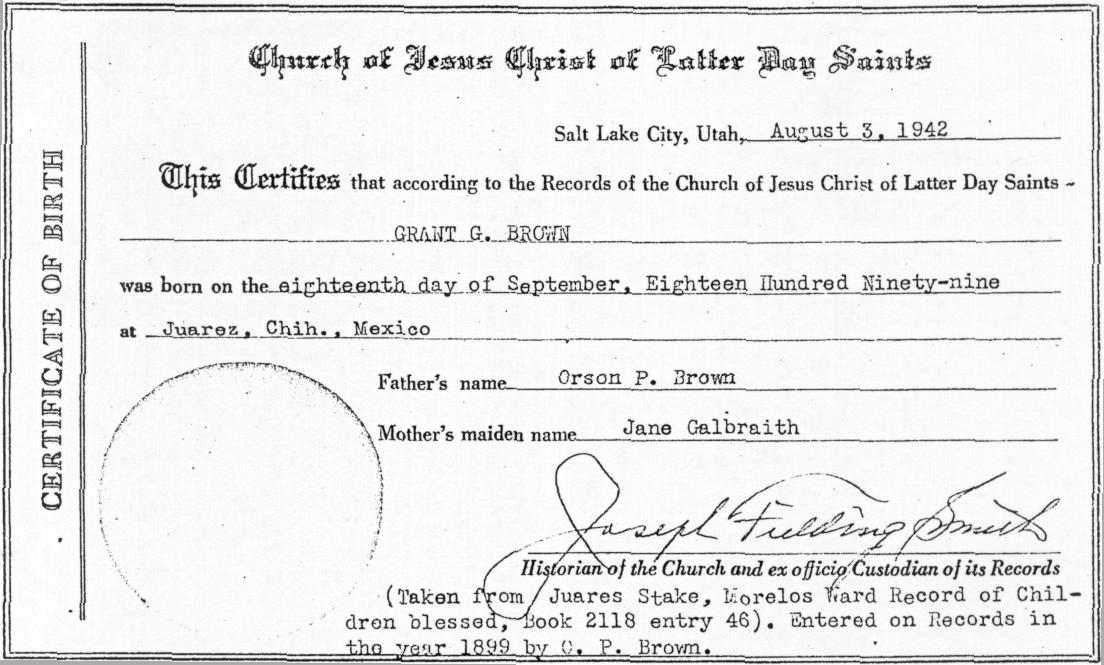 Church of Jesus Christ of Latter Day Saints
Salt Lake City, Utah, August 3, 1942
This Certifies that according to the Records of the Church of Jesus Christ of Latter Day Saints -
GRANT G. BROWN
was born on the eighteenth day of September, Eighteen Hundred Ninety-nine
at Juarez, Chih., Mexico
Father's name Orson P. Brown
Mother's maiden name Jane Galbraith
Joseph Fielding Smith
Historian of the Church and ex officio Custodian of its Records
(Taken from Juares Stake, Morelos Ward Record of Chil-
dren blessed, Book 2118 entry 46). Entered on Records in
the year 1899 by O. P. Brown.
CERTIFICATE OF BIRTH